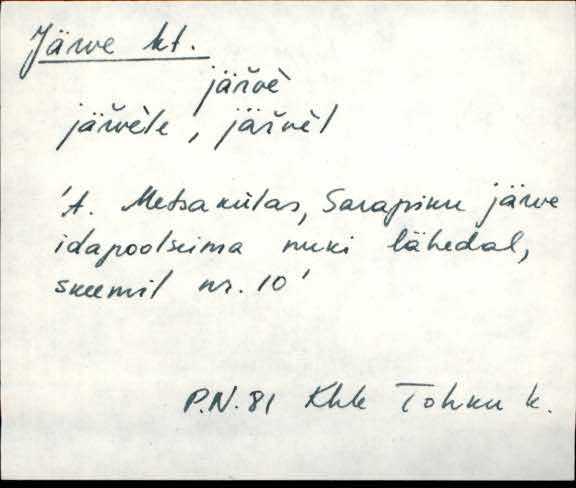 Järve kt.
järvè
järvèle, järvèl
't. Metsakülas, Sarapiku järve
idapoolseima nuki lähedal,
skeemil nr. 10'
P.N. 81 Khk Tohku k.